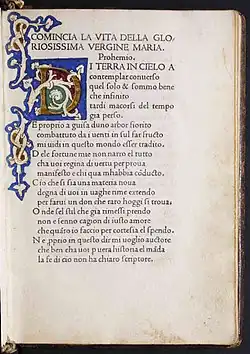 COMINCIA LA VITA DELLA GLO
RIOSISSIMA VERGINE MARIA.
Prohemio.
I TERRA IN CIELO A
contemplar conuerso
quel solo & sommo bene
che infinito
tardi macorsi del tempo
gia perso.
E proprio a guisa duno arbor fiorito
combattuto da i uenti in sul far fructo
mi uidi in questo mondo esser tradito.
D ele fortune mie non narro el tutto
cha uoi regina di uertu per proua
manifesto e chi qua mhabbia cõducto.
C io che si sia una materia noua
degna di uoi in uaghe rime extendo
per farui un don che raro hoggi si troua.
O nde sel stil che gia timessi prendo
non e senno cagion di iusto amore
che quãto io faccio per cortesia el spendo.
N e pprio in questo dir mi uoglio auctore
che ben cha uoi puera historia el mãda
la se di cio non ha chiaro scriptore.